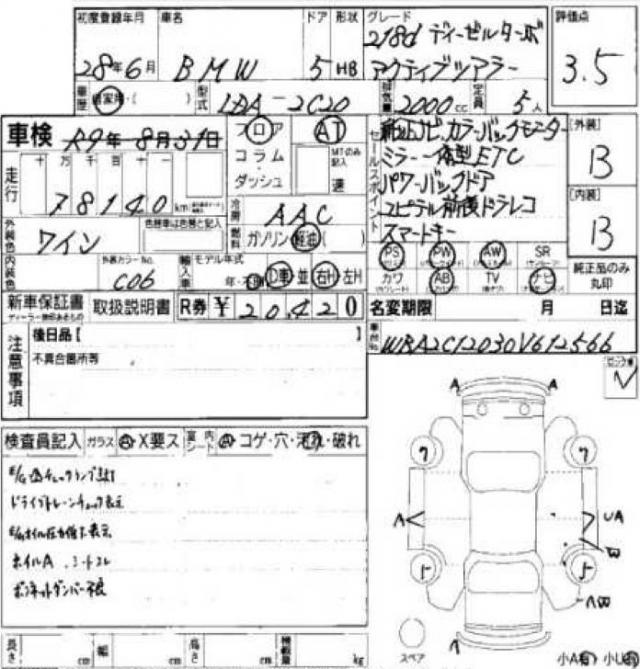 初度登録年月 車名 ドア 形状 グレード 評価点
28年6月 BMW 5 HB 218d ディーゼルターボ
アクティブツアラー 3.5
車歴 自家用・( ) 型式 LDA-2C20 排気量 2000cc 定員 5人
車検 R9年8月31日 フロア AT
コラム・ MTのみ記入
ダッシュ 速
セールスポイント 純正ナビ.カラーバックモニター
ミラー一体型ETC
パワーバックドア
コピテル前後ドラレコ
スマートキー
[外装] B
[内装] B
走行 十 万 千 百 十 一
78140km
冷房 AAC
外装色 ワイン 色替車は色替と記入 燃料 ガソリン・軽油( )
内装色 外装カラーNo. C06 輸入車 モデル年式 年・不明 D車・並 右H・左H
PS PW AW SR
カワ AB TV ナビ
純正品のみ丸印
新車保証書 取扱説明書 R券 ¥20,420
名変期限 月 日迄
後日品[ ]
車台No. WBA2C12030V612566
注意事項 不具合箇所等
検査員記入 ガラス A・X要ス 室内シート A・コゲ・穴・汚れ・破れ
ドライブトレーンチェック表示
E/gオイル圧力低下表示
ホイルA
ボンネットダンパー不良
A A
ワ ワ
A UA
W
5 5
AW
A
スペア
小A有 小U有
長さ cm 幅 cm 高さ cm 積載量 kg